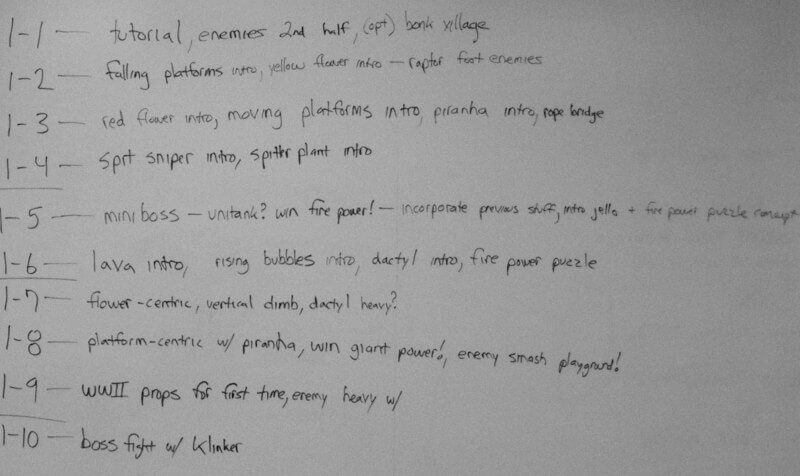 1-1 — tutorial, enemies 2nd half, (opt) bonk village
1-2 — falling platforms intro, yellow flower intro — raptor foot enemies
1-3 — red flower intro, moving platforms intro, piranha intro, rope bridge
1-4 — sprt sniper intro, spitter plant intro
1-5 — miniboss — unitank? win fire power! — incorporate previous stuff, intro jello + fire power puzzle concept
1-6 — lava intro, rising bubbles intro, dactyl intro, fire power puzzle
1-7 — flower-centric, vertical climb, dactyl heavy?
1-8 — platform-centric w/ piranha, win giant power!, enemy smash playground!
1-9 — WWII props for first time, enemy heavy w/
1-10 — boss fight w/ Klinker